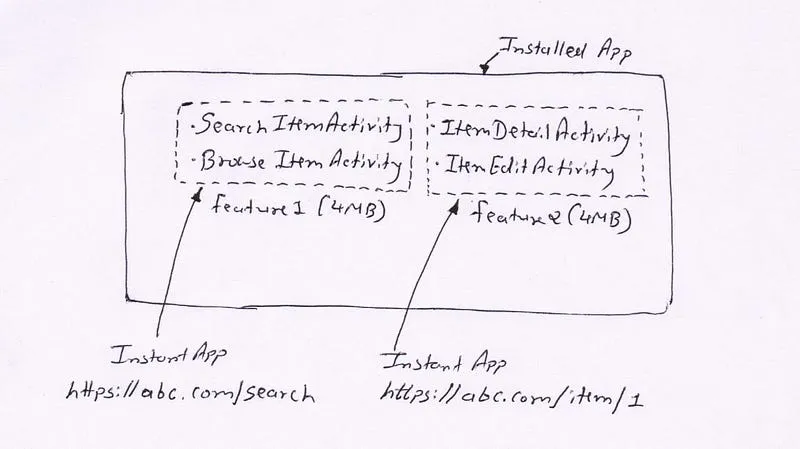 Installed App
·SearchItemActivity
·Browse ItemActivity
feature1 (4MB)
·ItemDetailActivity
·ItemEditActivity
feature2 (4MB)
Instant App
https://abc.com/search
Instant App
https://abc.com/item/1